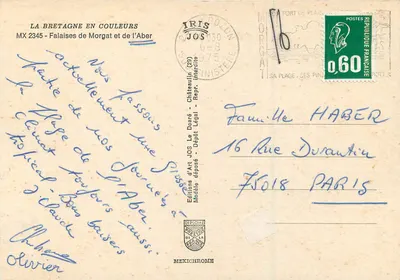 LA BRETAGNE EN COULEURS
MX 2345 - Falaises de Morgat et de l'Aber
IRIS
JOS
Nous passons
actuellement une grosse
partie de nos journées à
la plage de l'Aber.
Climat toujours aussi
tropical. Bons baisers
J. Claude
Olivier
Editions d'Art JOS Le Doaré - Châteaulin (29)
Modèle déposé - Dépôt légal - Repr. interdite
MEXICHROME
POSTES
0,60
REPUBLIQUE FRANÇAISE
Famille HABER
16 Rue Durantin
75018 PARIS